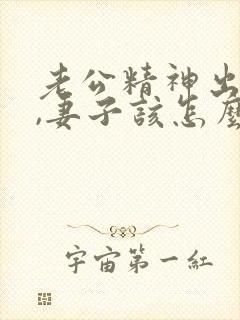 老公精神出
,妻子该怎麼
宇宙第一紅